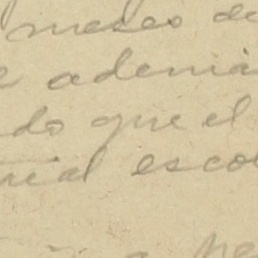 meses de
e ademá
do que el
rial esco